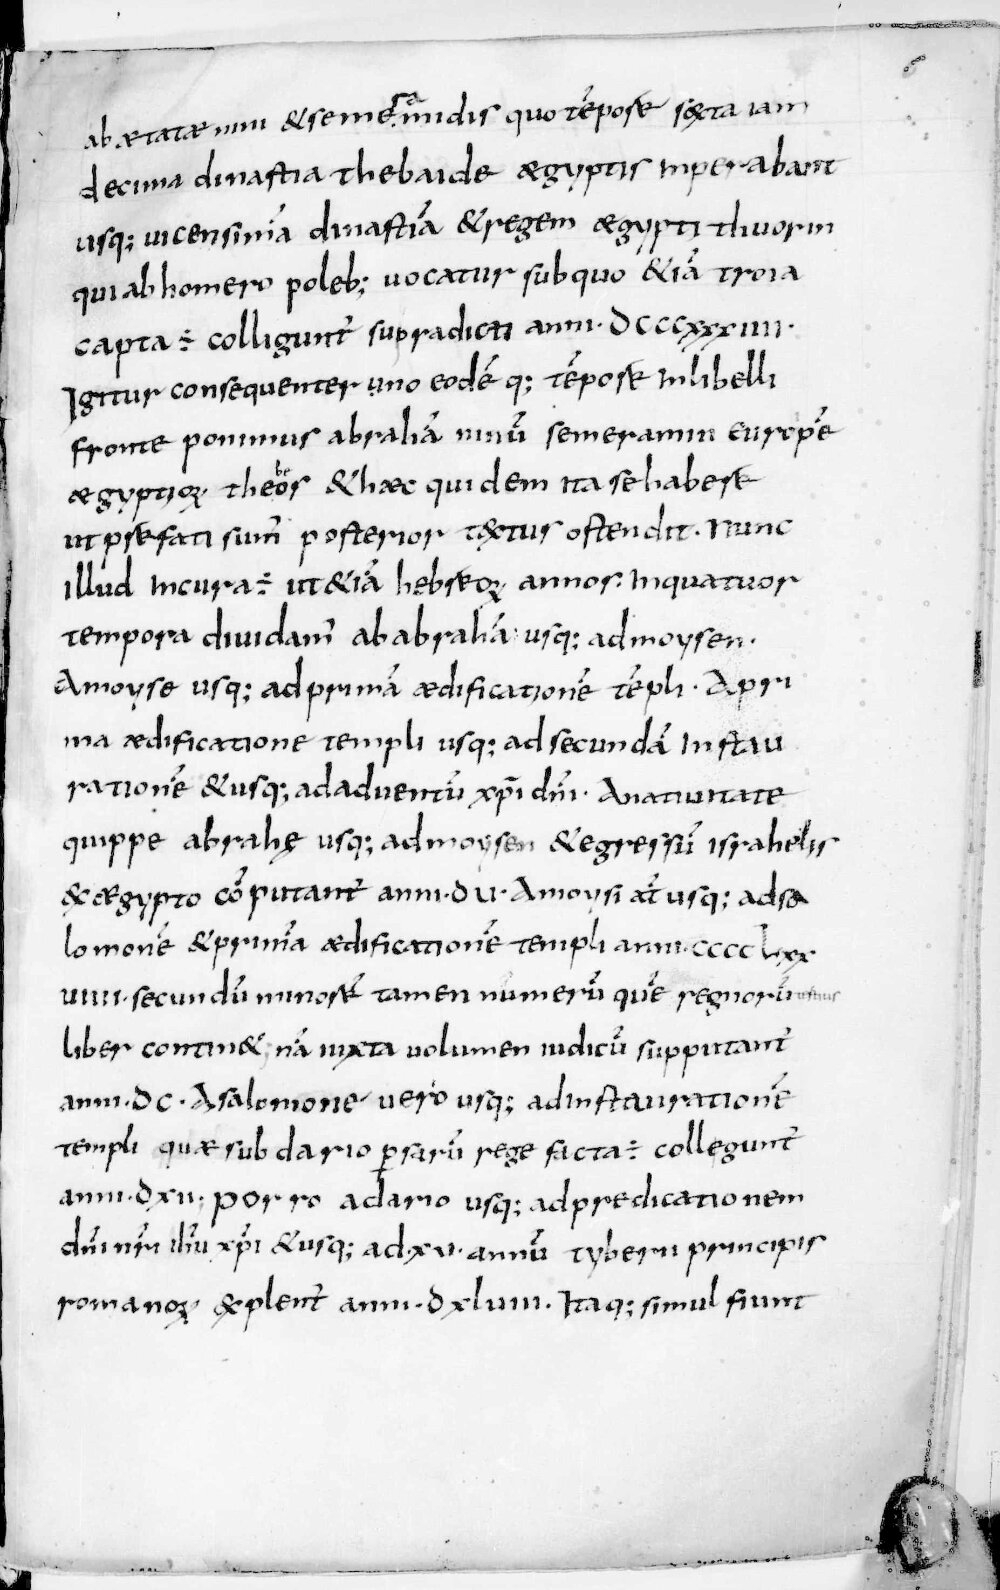 6
ab ætatæ nini & semeramidis quo tēpore sexta iam
decima dinastia thebaide ægyptis inperabant
usq; uicensimā dinastiā & regem ægypti thuorin
qui ab homero poleb; uocatur sub quo & iā troia
capta ÷ colligunt̄ supradicti anni · DCCCxxxiiii ·
Igitur consequenter uno eodē q; tēpore in libelli
fronte ponimus abrahā ninū semeramin europē
ægyptioꝝ thebeos & hæc quidem ita se habere
ut præfati sum̄ posterior textus ostendit . Nunc
illud in cura ÷ ut & iā hebreoꝝ annos : in quatuor
tempora diuidam̄ ab abrahā usq; ad moysen .
A moyse usq; ad primā ædificationē tēpli . A pri
ma ædificatione templi usq; ad secundā instau
rationē & usq; ad aduentū xp̄i dn̄i . A natiuitate
quippe abrahę usq; ad moysen & egressū israhelis
ex ægypto cōputant̄ anni · DV · A moysi at̄ usq; ad sa
lomonē & primā ædificationē templi anni · CCCCLxx
uiiii · secundū minorē tamen numerū quē regnorū
liber contin& ; nā iuxta uolumen iudicū supputant̄
anni · DC · A salomone uero usq; ad instaurationē
templi quæ sub dario ꝑsarū rege facta ÷ collegunt̄
anni · Dxii · porro a dario usq; ad predicationem
dn̄i nr̄i ih̄u xp̄i & usq; ad · xv · annū tyberii principis
romanoꝝ explent̄ anni · Dxluiii . Itaq; simul fiunt